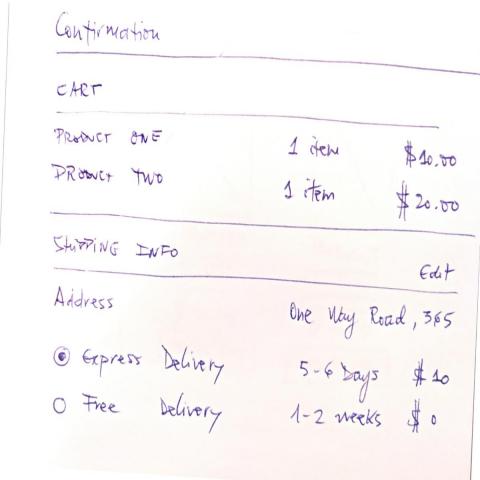 Confirmation
CART
PRODUCT ONE 1 item $10.00
PRODUCT TWO 1 item $20.00
SHIPPING INFO Edit
Address One Way Road, 365
Express Delivery 5-6 Days $10
Free Delivery 1-2 weeks $0